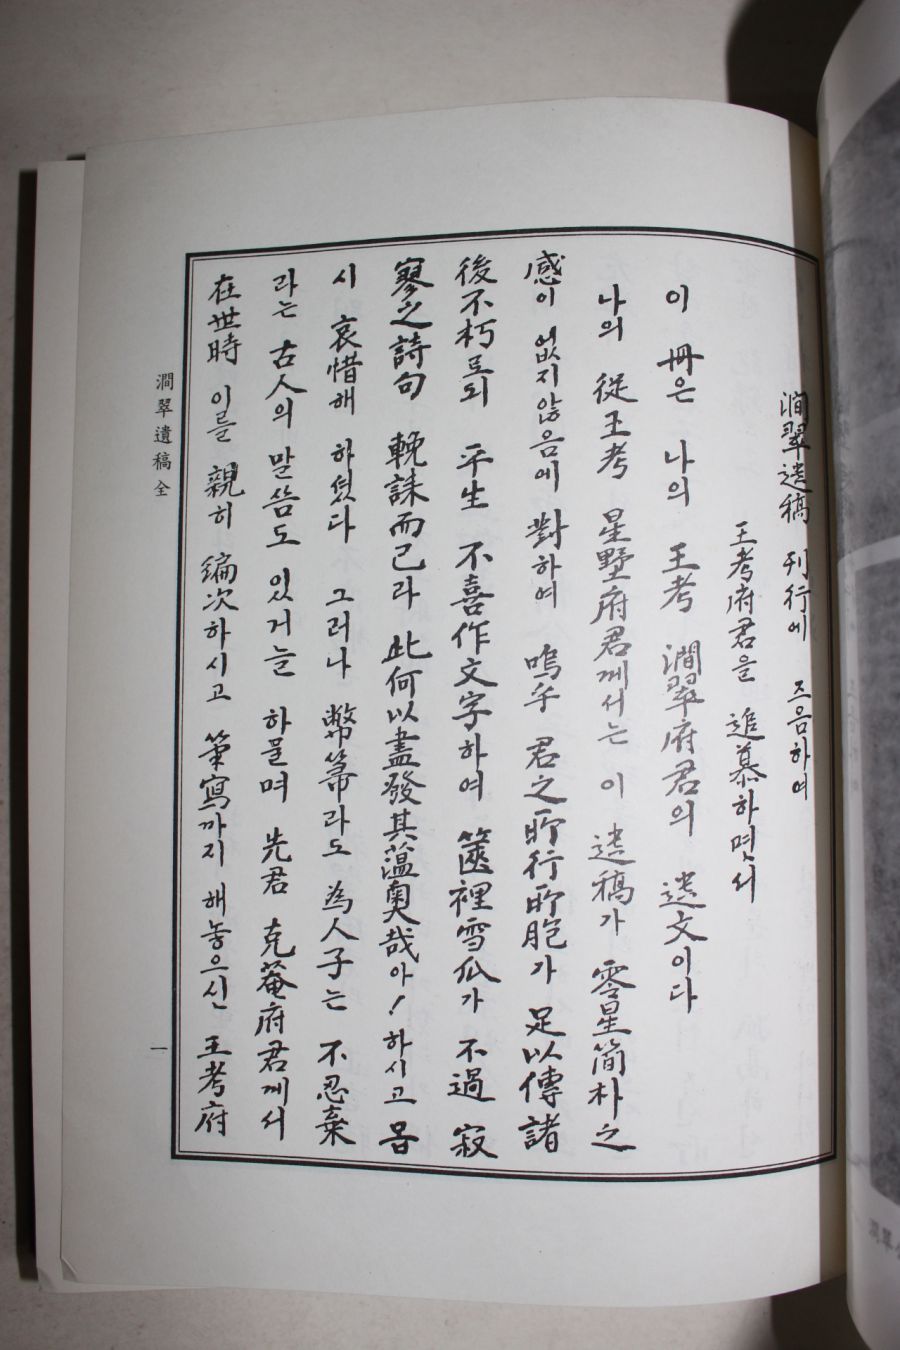 澗翠遺稿 刊行에 즈음하여
王考府君을 追慕하면서
이 冊은 나의 王考 澗翠府君의 遺文이다
나의 從王考 星墅府君께서는 이 遺稿가 零星簡朴之
感이 없지않음에 對하여 嗚乎 君之所行所胞가 足以傳諸
後不朽로되 平生 不喜作文字하여 篋裡雪瓜가 不過 寂
寥之詩句 輓誄而已라 此何以盡發其薀奧哉아! 하시고 몹
시 哀惜해 하셨다 그러나 幣箒라도 為人子는 不忍棄
라는 古人의 말씀도 있거늘 하물며 先君 克菴府君께서
在世時 이를 親히 編次하시고 筆寫까지 해놓으신 王考府
澗翠遺稿 全
一